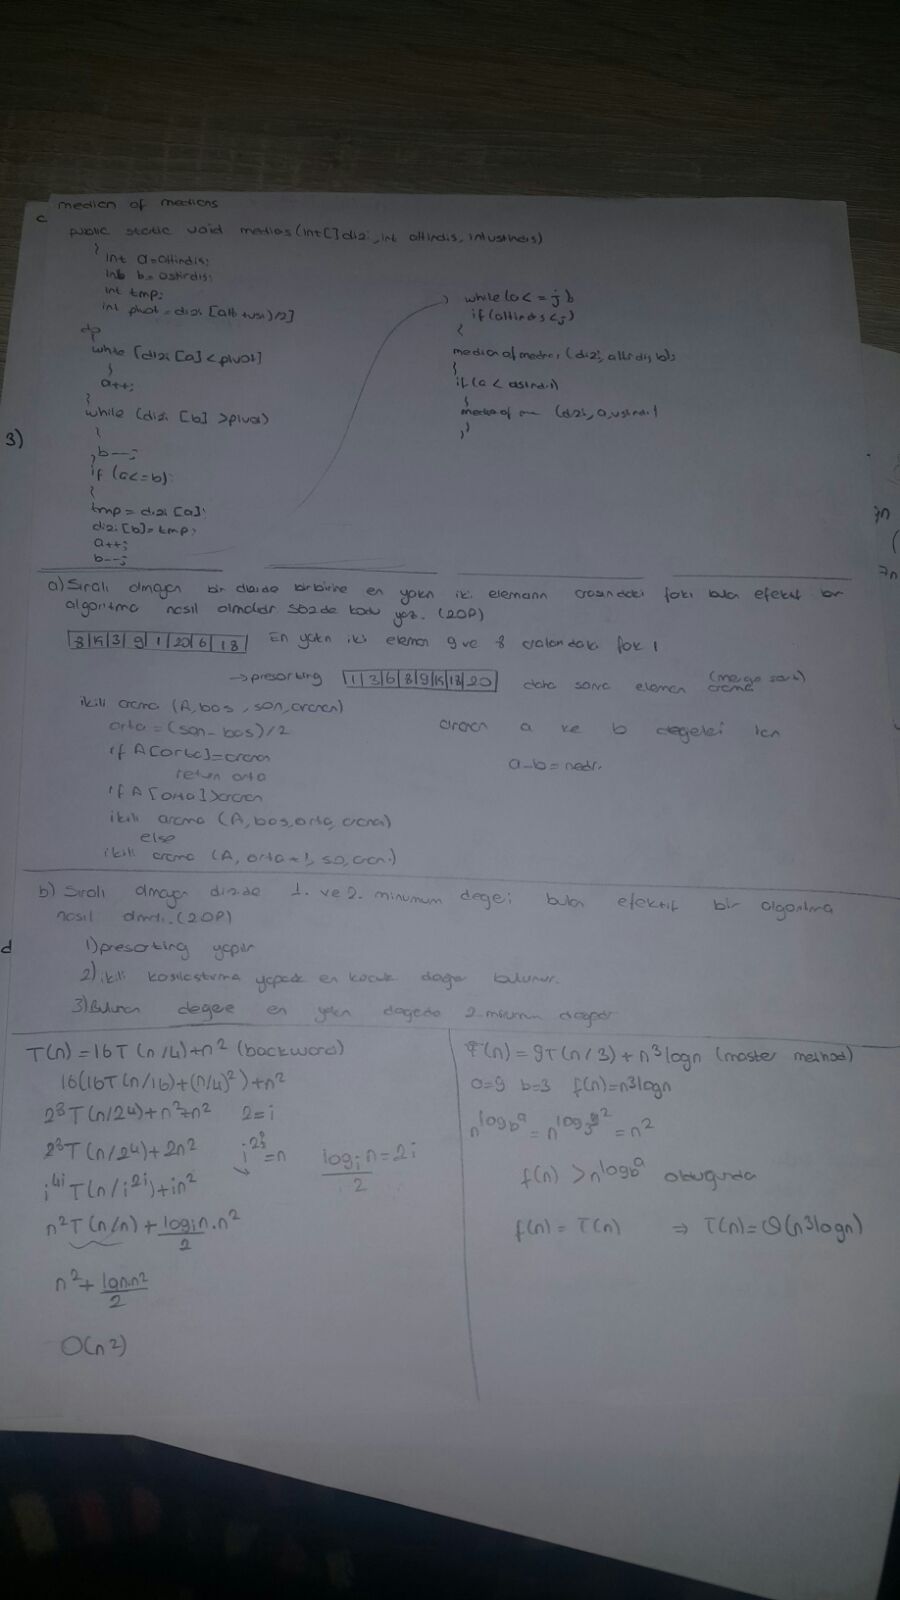 c median of medians
public static void medias(int[] dizi, int altindis, int ustindis)
{
int a=altindis;
int b=ustindis;
int tmp;
int pivot = dizi [alt +ust)/2]
do
while [dizi [a] < pivot]
{
a++;
}
while (dizi [b] >pivot)
{
b--;
}
if (a<=b)
{
tmp = dizi [a];
dizi [b]=tmp;
a++;
b--;
while (a <= b
if (altindis < j)
{
median of media, (dizi, altindis, b);
}
if (a < ustindis)
{
median of (dizi, a, ustindi)
}
3)
a) Sıralı olmayan bir dizide birbirine en yakın iki elemanın arasındaki farkı bulan efektif bir
algoritma nasıl olmalıdır sözde kodu yaz. (20P)
8|15|3|9|1|20|6|18| En yakın iki eleman 9 ve 8 aralarındaki fark 1
→ presorting |1|3|6|8|9|15|18|20| daha sonra eleman arama (merge sort)
ikili arama (A, bas, son, aranan)
orta = (son - bas) / 2
if A[orta]=aranan
return orta
if A[orta]>aranan
ikili arama (A, bas, orta, aranan)
else
ikili arama (A, orta+1, so, aran.)
aranan a ve b değeleri için
a-b = nedir.
b) Sıralı olmayan dizide 1. ve 2. minumum değei bulan efektif bir algoritma
nasıl olmalı. (20P)
d
1) presorting yapılır
2) ikili karşılaştırma yaparak en küçük değer bulunur.
3) Bulunan değere en yakın değerde 2. minumum değerdir
T(n) = 16T (n/4)+n² (backword)
16(16T(n/16)+(n/4)²)+n²
2⁸T(n/24)+n²+n² 2=i
2⁸T(n/24)+2n² i²ʲ=n log i n = 2i
2
i⁴ⁱT(n/i²ⁱ)+in²
n²T(n/n)+ log i n . n²
2
n² + lgn.n²
2
O(n²)
T(n) = 9T(n/3)+n³logn (master method)
a=9 b=3 f(n)=n³logn
n^logb^a = n^log3^3² = n²
f(n) > n^logb^a olduğunda
f(n) = T(n) ⇒ T(n)=Θ(n³logn)
7n
(
7n